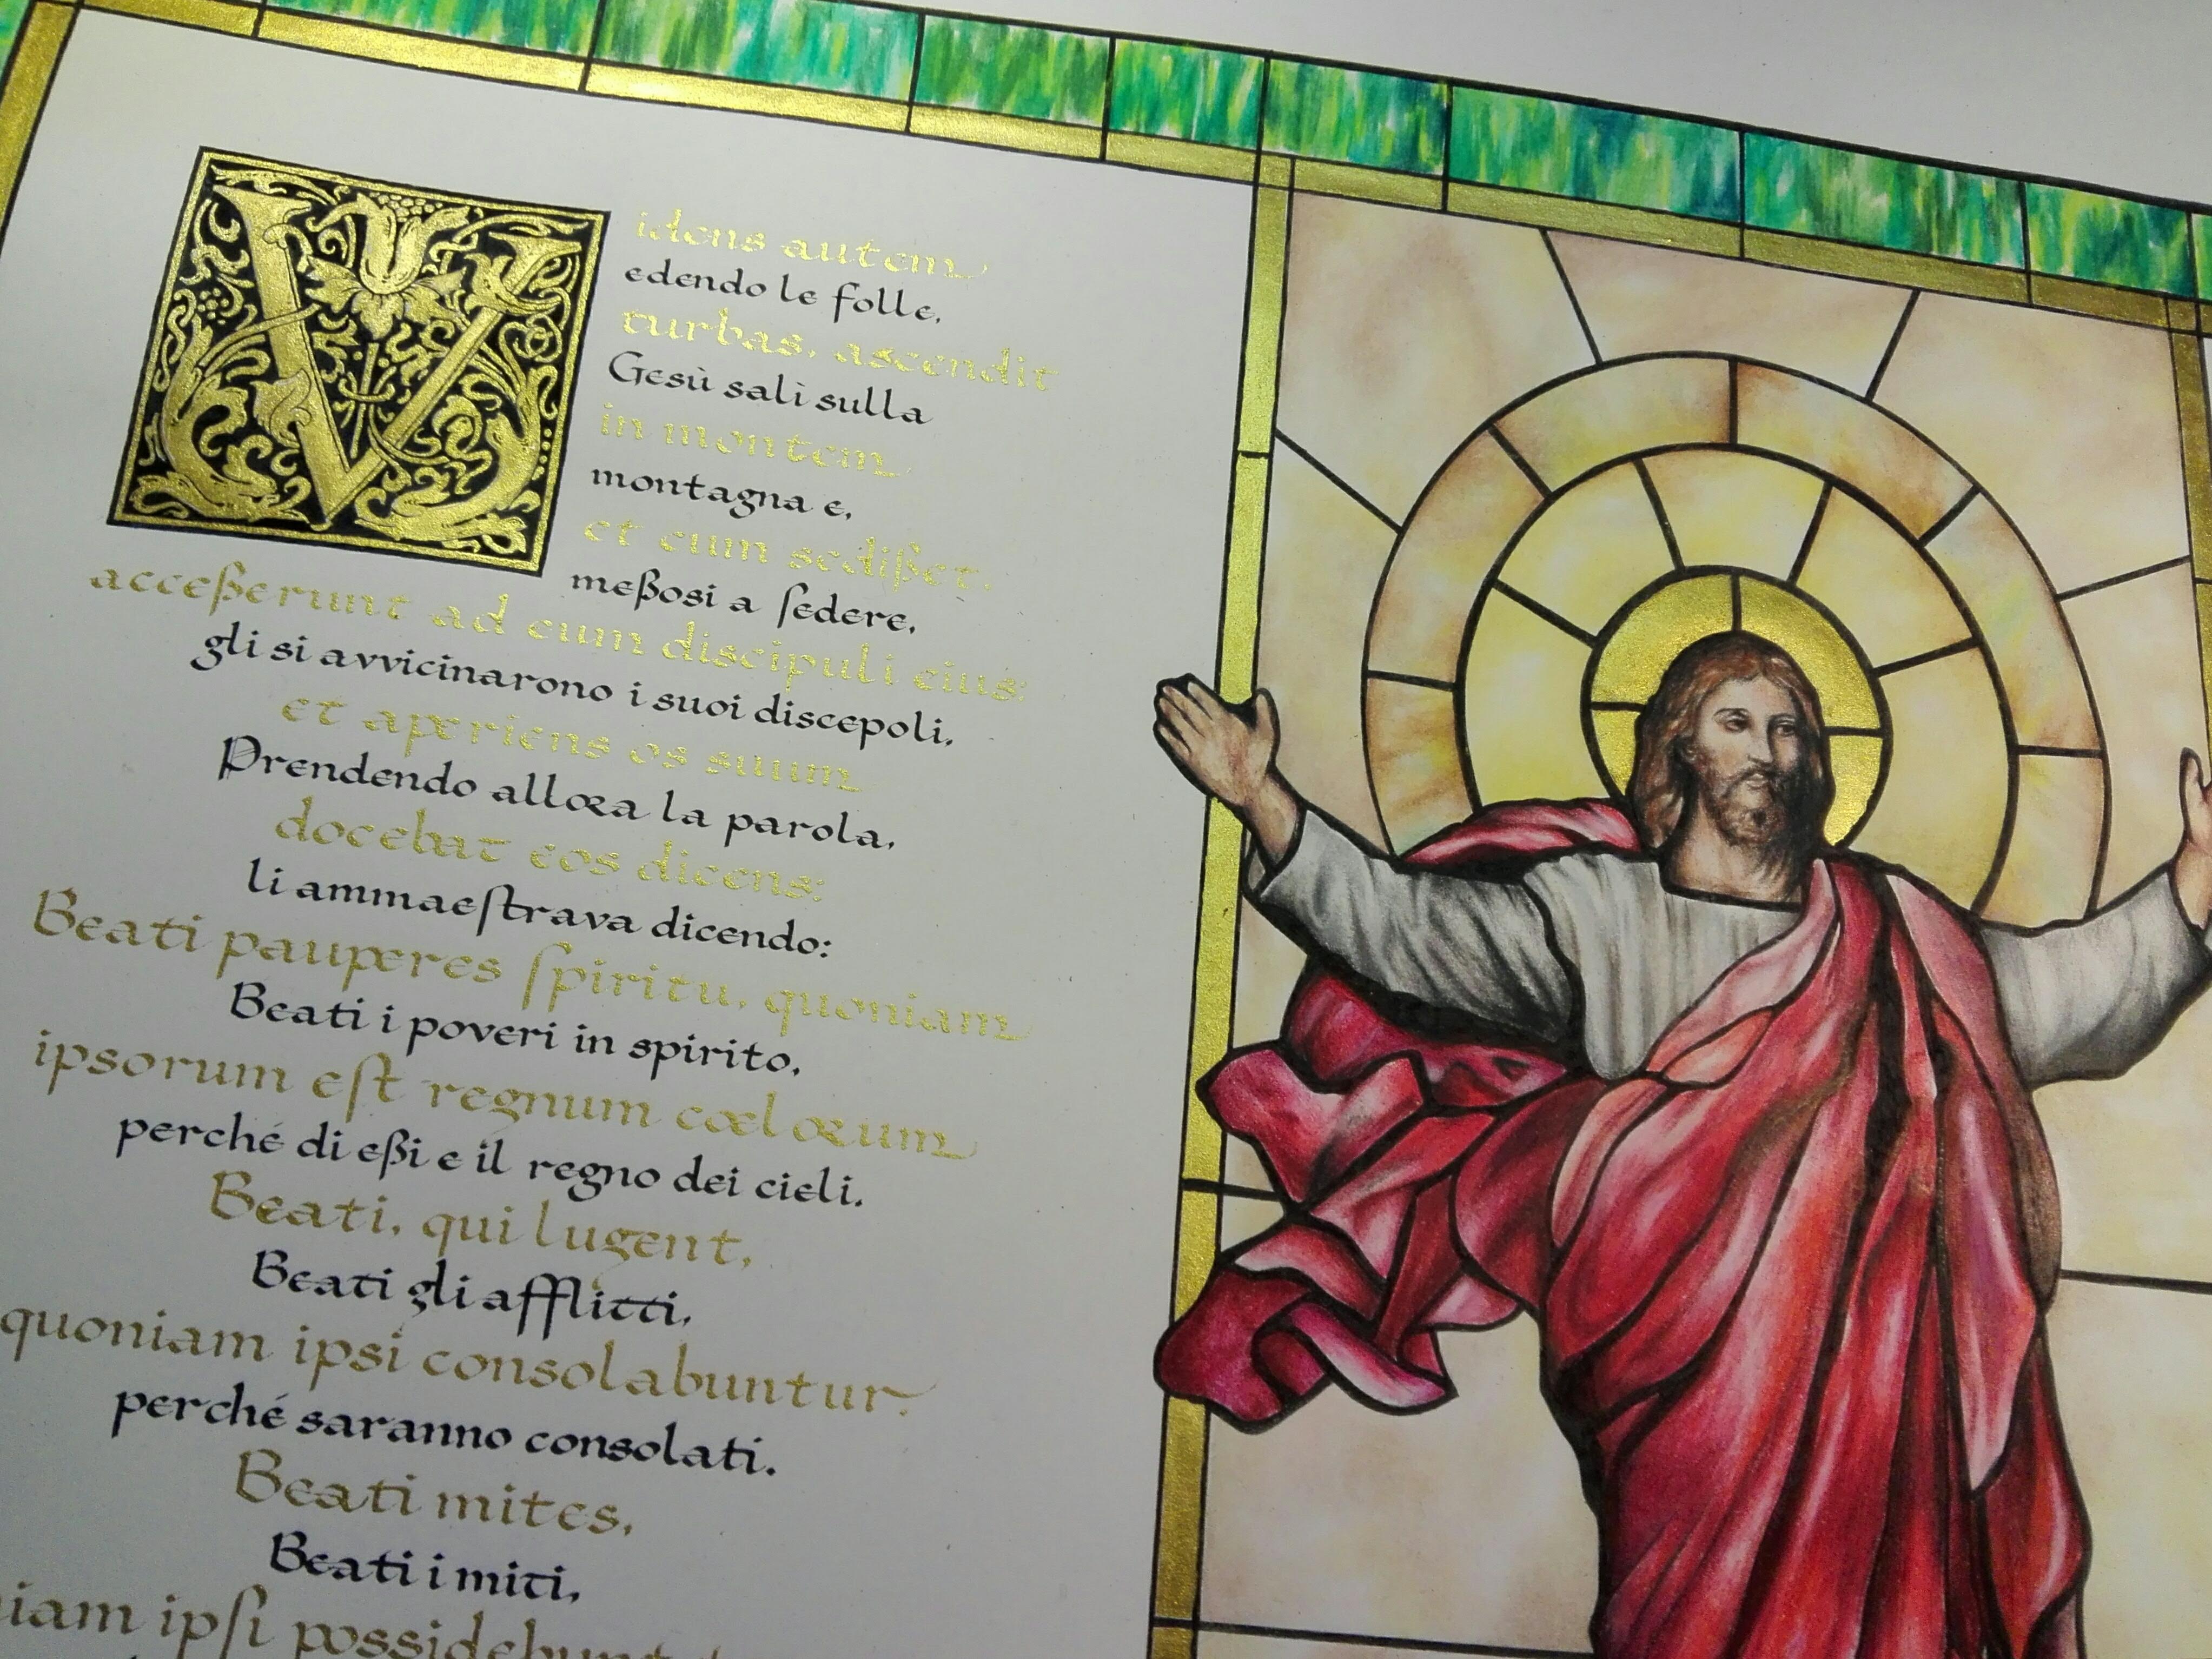 Videns autem
edendo le folle,
turbas, ascendit
Gesù sali sulla
in montem
montagna e,
et cum sedißet,
meßosi a ſedere,
acceßerunt ad eum discipuli eius;
gli si avvicinarono i suoi discepoli,
et aperiens os suum
Prendendo allora la parola,
docebat eos dicens:
li ammaeſtrava dicendo:
Beati pauperes ſpiritu, quoniam
Beati i poveri in spirito,
ipsorum eſt regnum cælorum
perché di eßi e il regno dei cieli.
Beati, qui lugent,
Beati gli afflitti,
quoniam ipsi consolabuntur.
perché saranno consolati.
Beati mites,
Beati i miti,
iam ipſi possidebunt